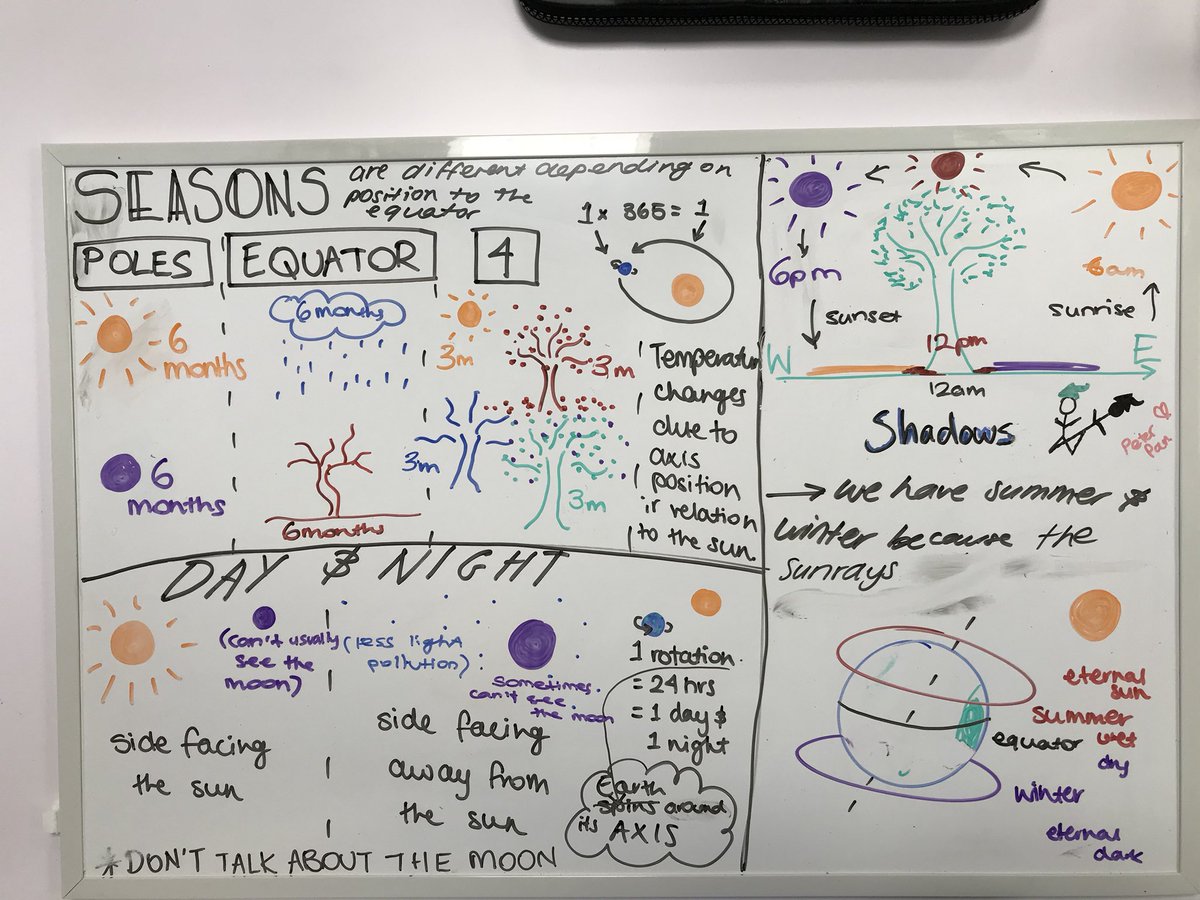 SEASONS are different depending on
position to the
equator
POLES
EQUATOR
4
1 x 365 = 1
6
months
6
months
6 months
6 months
3m
3m
3m
3m
Temperature
changes
due to
axis
position
ir relation
to the sun.
DAY & NIGHT
(can't usually
see the
moon)
(less light
pollution)
sometimes
can't see
the moon
side facing
the sun
side facing
away from
the sun
1 rotation
= 24 hrs
= 1 day &
1 night
Earth
spins around
its AXIS
*DON'T TALK ABOUT THE MOON
6pm
6am
sunset
sunrise
12pm
W
E
12am
Shadows
Peter
Pan
→ we have summer &
winter because the
sunrays
eternal
sun
summer
wet
equator
dry
winter
eternal
dark